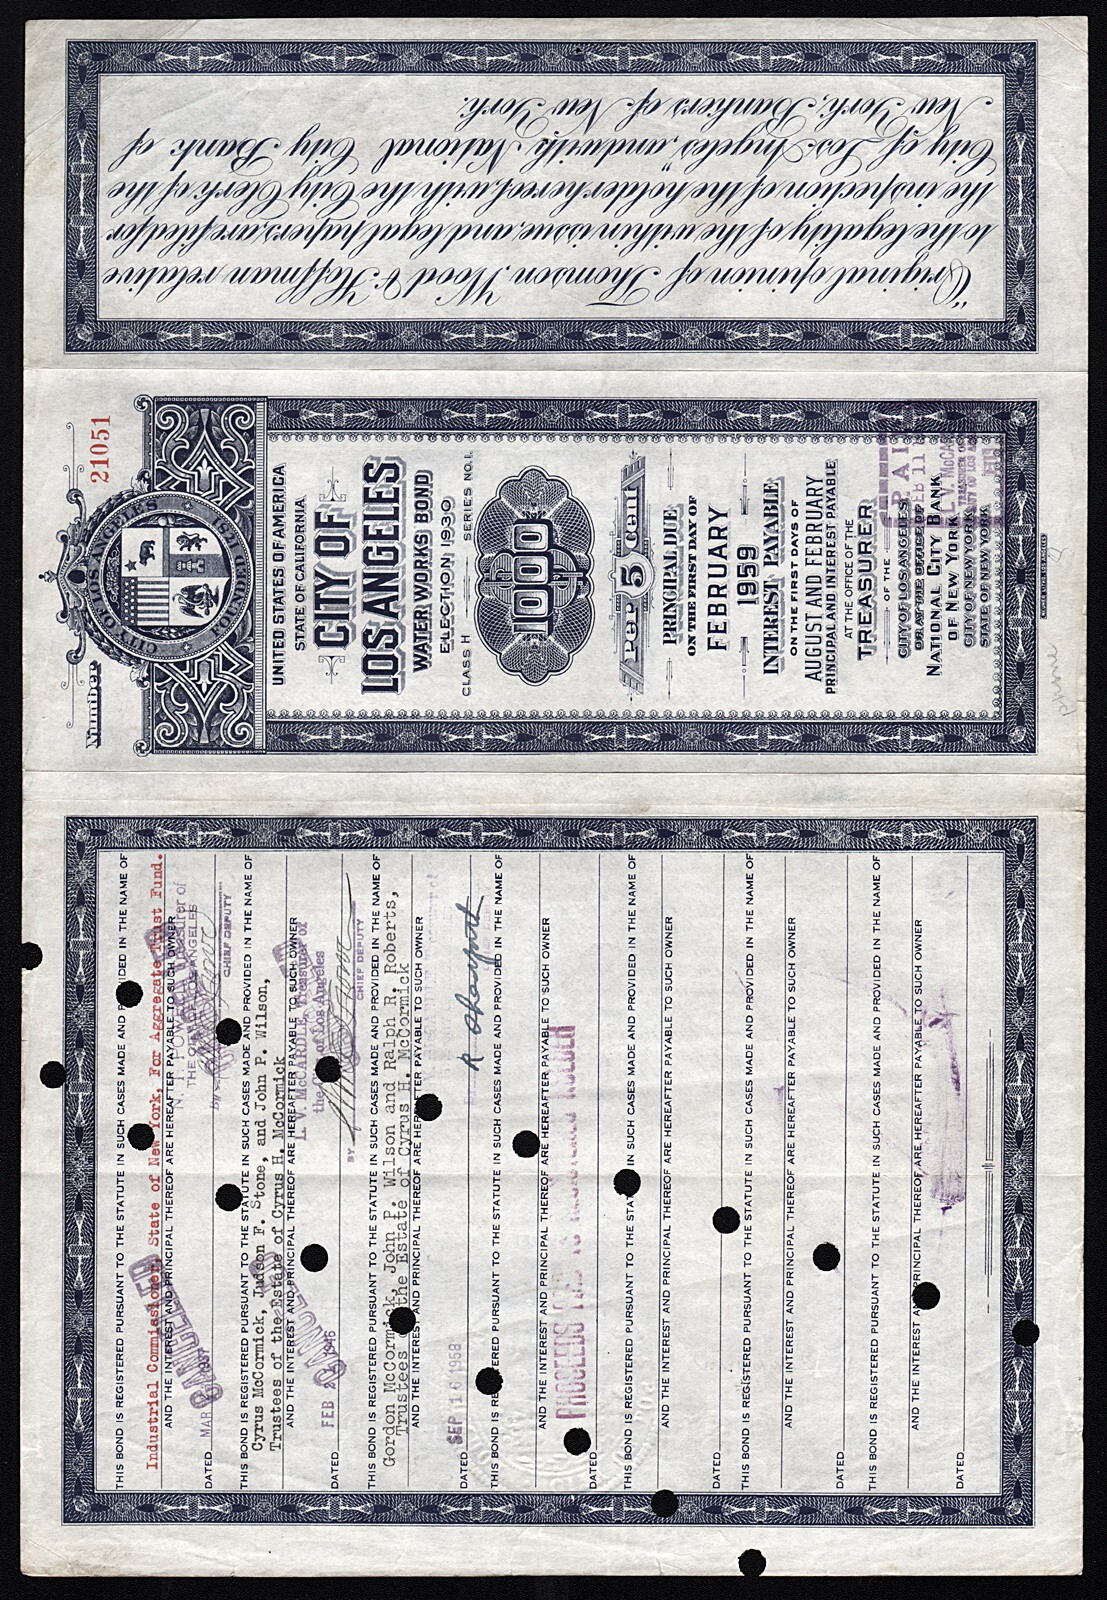 "Original opinion of Thomson, Wood & Hoffman relative
to the legality of the within issue, and legal papers, are filed for
the inspection of the holder hereof, with the City Clerk of the
City of Los Angeles", and with National City Bank of
New York, Bankers of New York.
Number 21051
CITY OF LOS ANGELES
FOUNDED 1781
UNITED STATES OF AMERICA
STATE OF CALIFORNIA
CITY OF
LOS ANGELES
WATER WORKS BOND
ELECTION 1930
CLASS H SERIES NO. 1.
1000
Per 5 Cent
PRINCIPAL DUE
ON THE FIRST DAY OF
FEBRUARY
1959
INTEREST PAYABLE
ON THE FIRST DAYS OF
AUGUST AND FEBRUARY
PRINCIPAL AND INTEREST PAYABLE
AT THE OFFICE OF THE
TREASURER
OF THE
CITY OF LOS ANGELES
OR AT THE OFFICE OF
NATIONAL CITY BANK
OF NEW YORK
CITY OF NEW YORK
STATE OF NEW YORK
PAI
FEB 11
L. V. McCA
TREASURER OF
CITY OF LOS AN
THIS BOND IS REGISTERED PURSUANT TO THE STATUTE IN SUCH CASES MADE AND PROVIDED IN THE NAME OF
Industrial Commissioner, State of New York, For Aggregate Trust Fund.
AND THE INTEREST AND PRINCIPAL THEREOF ARE HEREAFTER PAYABLE TO SUCH OWNER
Treasurer of
THE CITY OF LOS ANGELES
CANCELLED
DATED MAR 1937
By
CHIEF DEPUTY
THIS BOND IS REGISTERED PURSUANT TO THE STATUTE IN SUCH CASES MADE AND PROVIDED IN THE NAME OF
Cyrus McCormick, Judson F. Stone, and John P. Wilson,
Trustees of the Estate of Cyrus H. McCormick
AND THE INTEREST AND PRINCIPAL THEREOF ARE HEREAFTER PAYABLE TO SUCH OWNER
L. V. McCARDLE, Treasurer of
the City of Los Angeles
CANCELLED
DATED FEB 1946
BY
CHIEF DEPUTY
THIS BOND IS REGISTERED PURSUANT TO THE STATUTE IN SUCH CASES MADE AND PROVIDED IN THE NAME OF
Gordon McCormick, John P. Wilson and Ralph R. Roberts,
Trustees of the Estate of Cyrus H. McCormick
AND THE INTEREST AND PRINCIPAL THEREOF ARE HEREAFTER PAYABLE TO SUCH OWNER
DATED SEP 16 1958
THIS BOND IS REGISTERED PURSUANT TO THE STATUTE IN SUCH CASES MADE AND PROVIDED IN THE NAME OF
AND THE INTEREST AND PRINCIPAL THEREOF ARE HEREAFTER PAYABLE TO SUCH OWNER
PROCEEDS PAID TO REGISTERED HOLDER
DATED
THIS BOND IS REGISTERED PURSUANT TO THE STATUTE IN SUCH CASES MADE AND PROVIDED IN THE NAME OF
AND THE INTEREST AND PRINCIPAL THEREOF ARE HEREAFTER PAYABLE TO SUCH OWNER
DATED
THIS BOND IS REGISTERED PURSUANT TO THE STATUTE IN SUCH CASES MADE AND PROVIDED IN THE NAME OF
AND THE INTEREST AND PRINCIPAL THEREOF ARE HEREAFTER PAYABLE TO SUCH OWNER
DATED
THIS BOND IS REGISTERED PURSUANT TO THE STATUTE IN SUCH CASES MADE AND PROVIDED IN THE NAME OF
AND THE INTEREST AND PRINCIPAL THEREOF ARE HEREAFTER PAYABLE TO SUCH OWNER
DATED